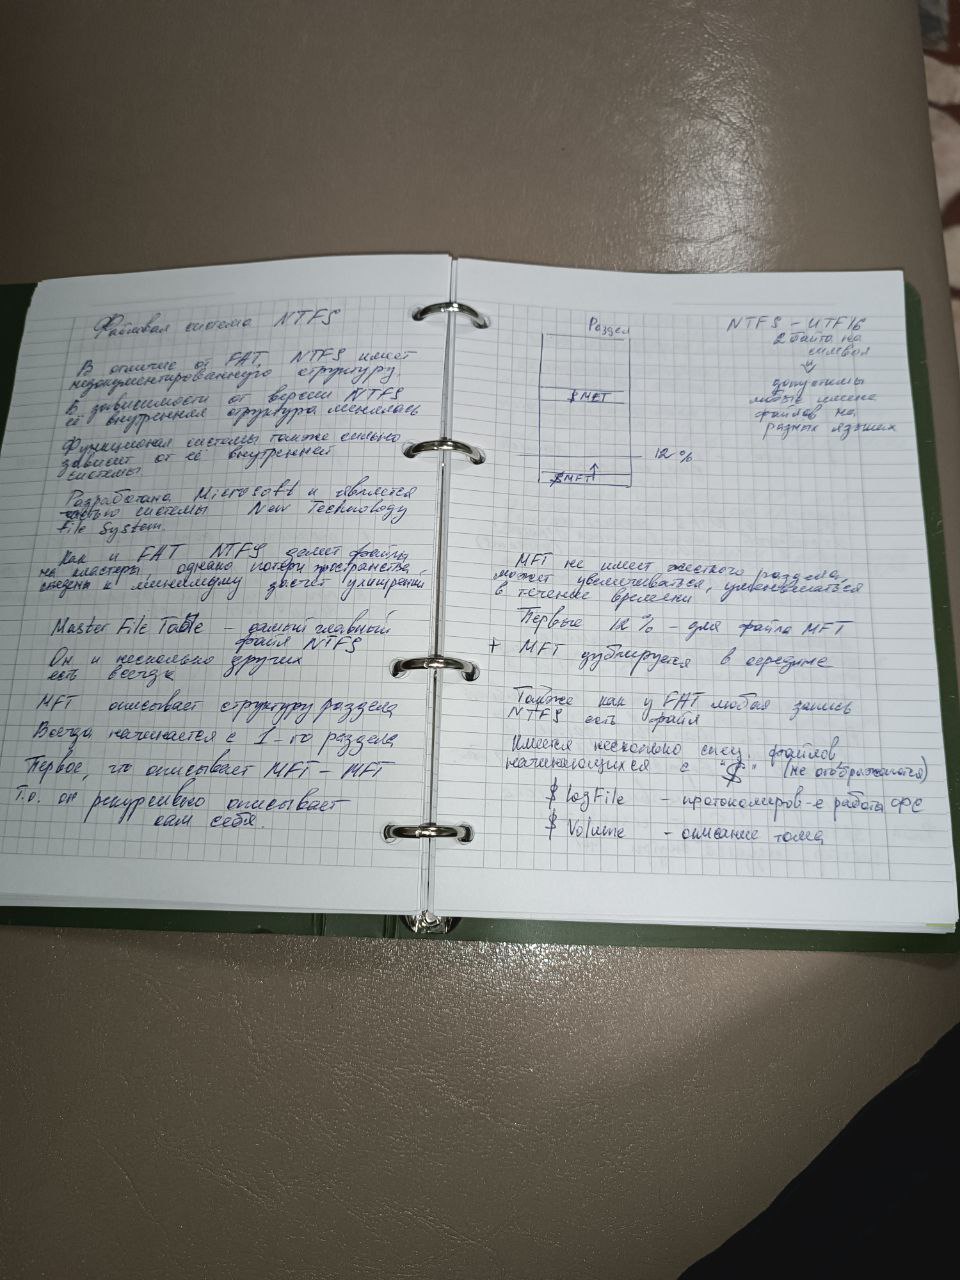 Файловая система NTFS
В отличие от FAT, NTFS имеет
недокументированную структуру.
В зависимости от версии NTFS
её внутренняя структура менялась
Функционал системы также сильно
зависит от её внутренней
системы
Разработана Microsoft и является
частью системы New Technology
File System.
Как и FAT NTFS делит файлы
на кластеры, однако потери пространства
сведены к минимуму засчёт
Master File Table – самый главный
файл NTFS
Он и несколько других
есть всегда
MFT описывает структуру раздела
Всегда начинается с 1-го раздела
Первое, что описывает MFT – MFT
Т.о. он рекурсивно описывает
сам себя.
Раздел
$MFT
12%
$MFT
NTFS – UTF16
2 байта на
символ
допустимы
любые имена
файлов на
разных языках
MFT не имеет жёсткого раздела,
может увеличиваться, уменьшаться
в течение времени
Первые 12% – для файла MFT
+ MFT дублируется в середине
Также как у FAT любая запись
NTFS есть файл
Имеется несколько спец. файлов
начинающихся с "$" (не отображаются)
$LogFile – протоколиров-е работы ФС
$Volume – описание тома